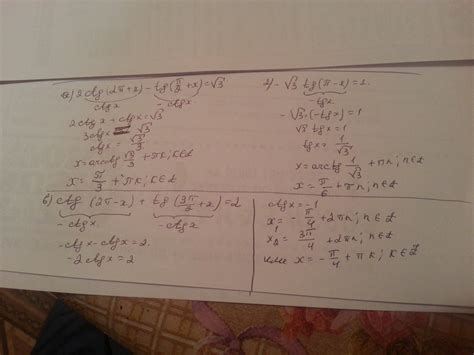 а) 2 ctg(2π+x) - tg(π/2+x) = √3
ctgx - ctgx
2ctgx + ctgx = √3
3ctgx = √3
ctgx = √3/3
x = arcctg √3/3 + πk; k∈Z
x = π/3 + πk; k∈Z
г) -√3 tg(π-x) = 1.
-tgx
-√3·(-tgx) = 1
√3 tgx = 1
tgx = 1/√3
x = arctg 1/√3 + πn; n∈Z
x = π/6 + πn; n∈Z
в) ctg(2π-x) + tg(3π/2+x) = 2
-ctgx -ctgx
-ctgx - ctgx = 2.
-2ctgx = 2
ctgx = -1
x = -π/4 + 2πn; n∈Z
x₂ = 3π/4 + 2πn; n∈Z
x = -π/4 + πk; k∈Z